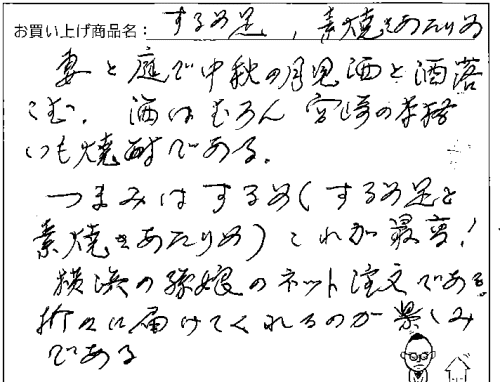 お買い上げ商品名： するめ足 , 素焼きあたりめ
妻と庭で中秋の月見酒と洒落
こむ。酒はむろん宮崎の本格
いも焼酎である。
つまみはするめ(するめ足と
素焼きあたりめ)これが最高!
横浜の孫娘のネット注文である。
折々に届けてくれるのが楽しみ
である